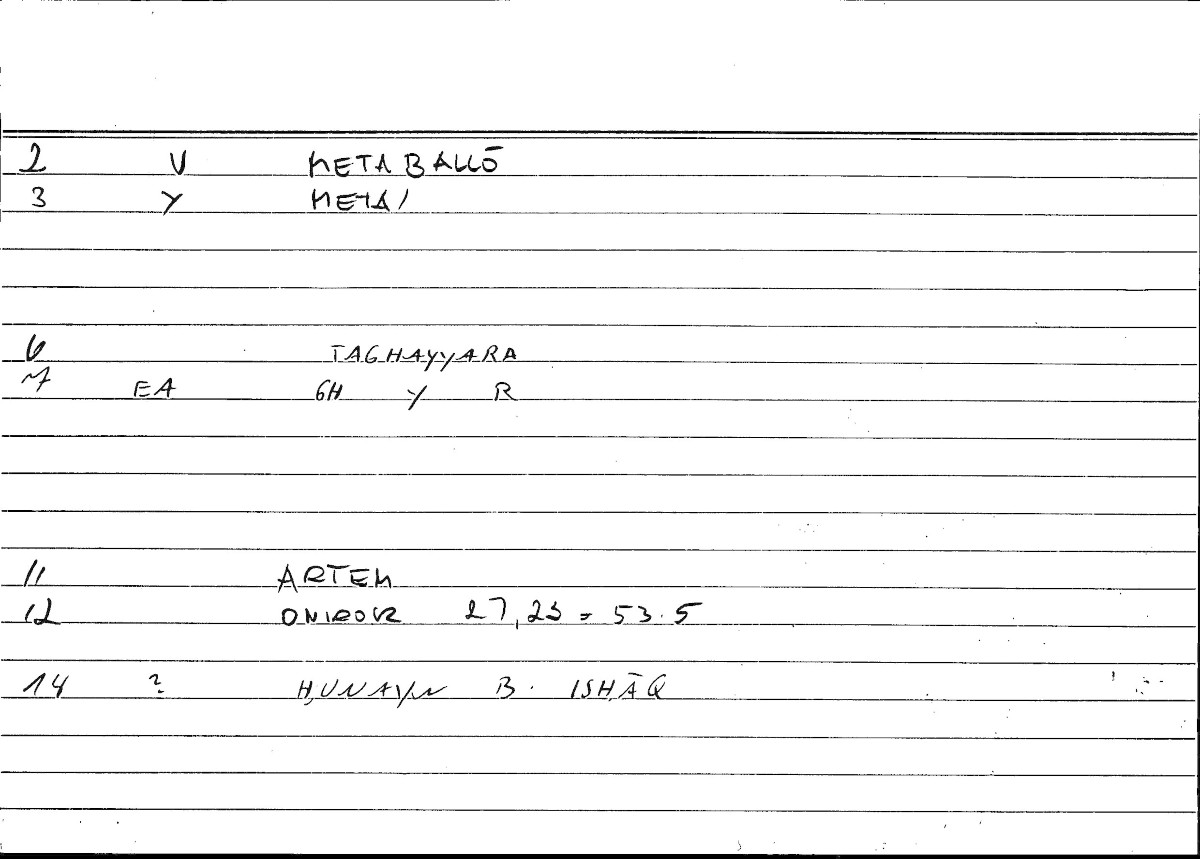 2 V METABALLŌ
3 Y META/
6 TAGHAYYARA
7 EA GH Y R
11 ARTEM
12 ONIROCR 27,23 = 53.5
14 ? ḤUNAYN B. ISḤĀQ